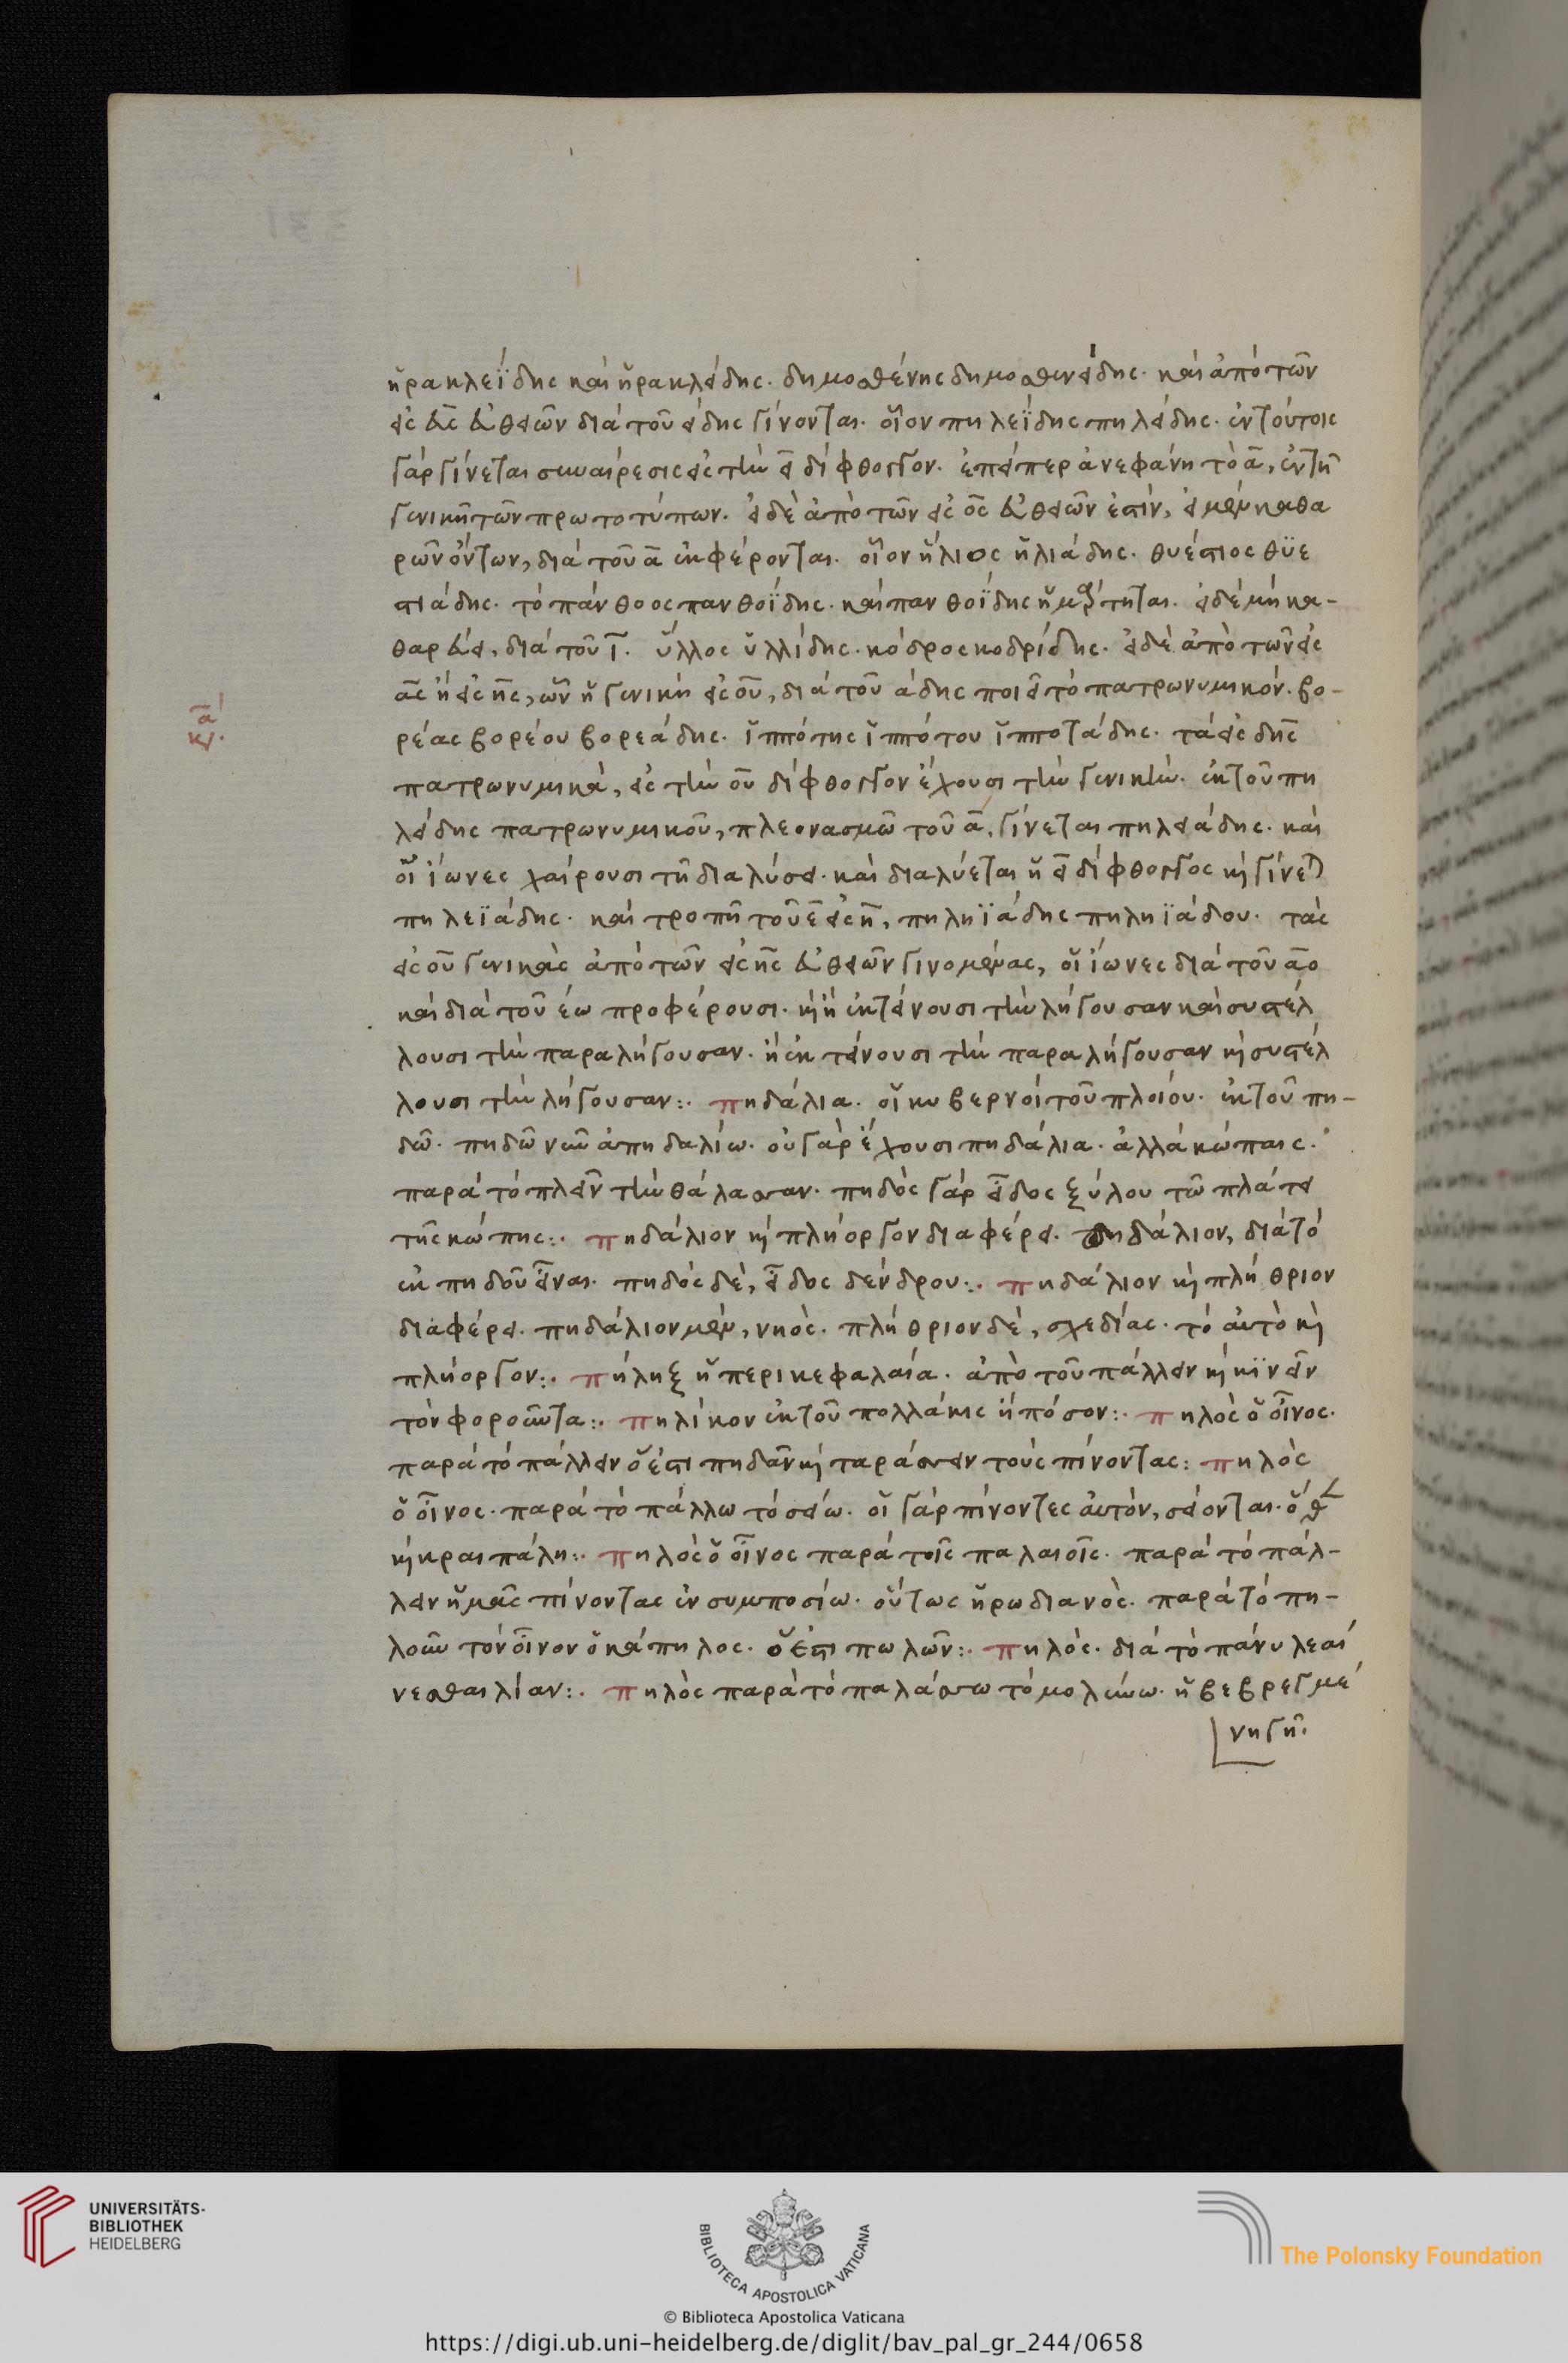 ἡρακλείδης καὶ ἡρακλείδης. δημοσθένης δημοσθενείδης. καὶ ἀπὸ τῶν
εἰς εὺς εὐθειῶν διὰ τοῦ είδης γίνονται. οἷον πηλεΐδης πηλείδης. ἐν τούτοις
γὰρ γίνεται συναίρεσις εἰς τὴν ει δίφθογγον. ἐπείπερ ἀνεφάνη τὸ ε, ἐν τῇ
γενικῇ τῶν πρωτοτύπων. εἰ δὲ ἀπὸ τῶν εἰς ος εὐθειῶν ἐστὶν, εἰ μὲν καθα
ρῶν ὄντων, διὰ τοῦ α ἐκφέρονται. οἷον ἥλιος ἡλιάδης. θυέστιος θϋε
στιάδης. τὸ πάνθοος πανθοΐδης. καὶ πανθοΐδης ἡμάρτηται. εἰ δὲ μὴ κα-
θαρεύει, διὰ τοῦ ι. ὕλλος ὑλλίδης. κόδρος κοδρίδης. εἰ δὲ ἀπὸ τῶν εἰς
ας ἢ εἰς ης, ὧν ἡ γενικὴ εἰς ου, διὰ τοῦ άδης ποιεῖ τὸ πατρωνυμικόν. βο-
ρέας βορέου βορεάδης. ἱππότης ἱππότου ἱπποτάδης. τὰ εἰς δης
πατρωνυμικὰ, εἰς τὴν ου δίφθογγον ἔχουσι τὴν γενικὴν. ἐκ τοῦ πη
λείδης πατρωνυμικοῦ, πλεονασμῶ τοῦ α, γίνεται πηλειάδης. καὶ
οἱ ἴωνες χαίρουσι τῇ διαλύσει. καὶ διαλύεται ἡ ει δίφθογγος καὶ γίνεται
πηλεϊάδης. καὶ τροπῇ τοῦ ε εἰς η, πηληϊάδης πηληϊάδου. τὰς
εἰς ου γενικὰς ἀπὸ τῶν εἰς ης εὐθειῶν γινομένας, οἱ ἴωνες διὰ τοῦ αο
καὶ διὰ τοῦ έω προφέρουσι. καὶ ἢ ἐκτείνουσι τὴν λήγουσαν καὶ συστέλ
λουσι τὴν παραλήγουσαν. ἢ ἐκτείνουσι τὴν παραλήγουσαν καὶ συστέλ
λουσι τὴν λήγουσαν:. πηδάλια. οἱ κυβερνοὶ τοῦ πλοίου. ἐκ τοῦ πη-
δῶ. πηδῶ νῦν ἀπηδαλίω. οὐ γὰρ ἔχουσι πηδάλια. ἀλλὰ κώπαις.
παρὰ τὸ πλεῖν τὴν θάλασσαν. πηδὸς γὰρ εἶδος ξύλου τῶ πλάτει
τῆς κώπης:. πηδάλιον καὶ πλήοργον διαφέρει. πηδάλιον, διὰ τὸ
ἐκ πηδοῦ εἶναι. πηδὸς δὲ, εἶδος δένδρου:. πηδάλιον καὶ πλήθριον
διαφέρει. πηδάλιον μὲν, νηὸς. πλήθριον δὲ, σχεδίας. τὸ αὐτὸ καὶ
πλήοργον:. πήληξ ἡ περικεφαλαία. ἀπὸ τοῦ πάλλειν καὶ κϊνεῖν
τὸν φοροῦντα:. πηλίκον ἐκ τοῦ πολλάκις ἢ πόσον:. πηλὸς ὁ οἶνος.
παρὰ τὸ πάλλειν ὅ ἐστι πηδᾶν καὶ ταράσσειν τοὺς πίνοντας: πηλὸς
ὁ οἶνος. παρὰ τὸ πάλλω τὸ σείω. οἱ γὰρ πίνοντες αὐτὸν, σείονται. ὅθεν
καὶ κραιπάλη:. πηλὸς ὁ οἶνος παρὰ τοῖς παλαιοῖς. παρὰ τὸ πάλ-
λειν ἡμᾶς πίνοντας ἐν συμποσίω. οὕτως ἡρωδιανὸς. παρὰ τὸ πη-
λοῦν τὸν οἶνον ὁ κάπηλος. ὅ ἐστι πωλῶν:. πηλὸς. διὰ τὸ πάνυ λεαί
νεσθαι λίαν:. πηλὸς παρὰ τὸ παλάσσω τὸ μολύνω. ἡ βεβρεγμέ
νη γῆ.
UNIVERSITÄTS-
BIBLIOTHEK
HEIDELBERG
BIBLIOTECA APOSTOLICA VATICANA
The Polonsky Foundation
© Biblioteca Apostolica Vaticana
https://digi.ub.uni-heidelberg.de/diglit/bav_pal_gr_244/0658